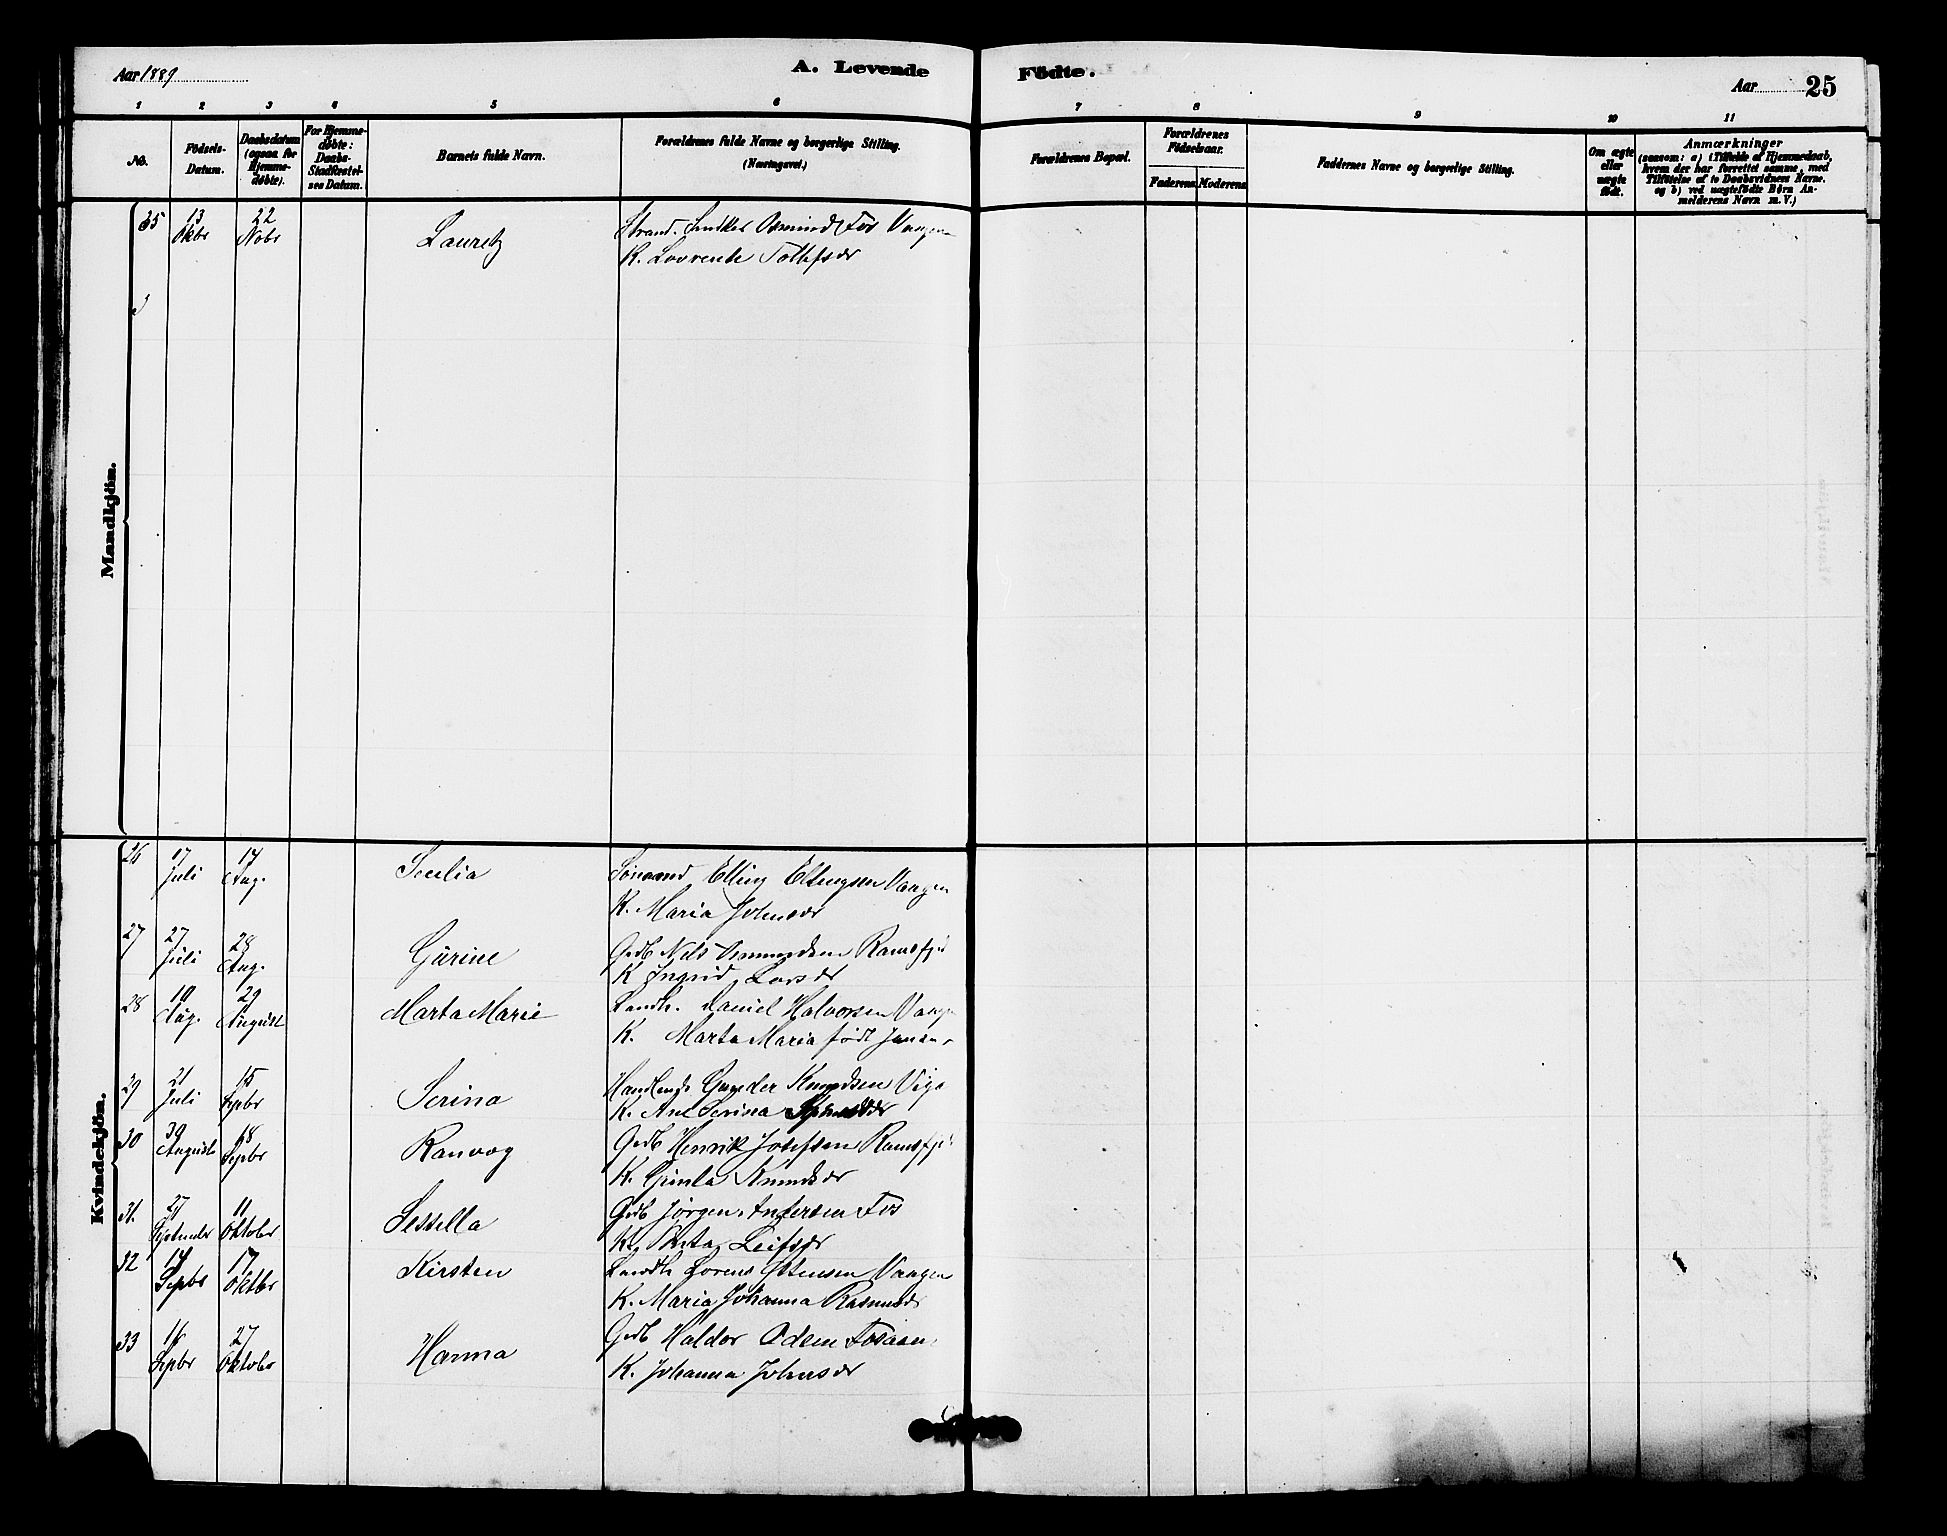 Aar 1889
A. Levende
Födte.
Aar 25
1 2 3 4 5 6 7 8 9 10 11
No.
Födsels-
Datum.
Daabsdatum
(ogsaa for
Hjemme-
døbte).
For Hjemme-
døbte:
Daabs-
Stadfæstel-
ses Datum.
Barnets fulde Navn.
Forældrenes fulde Navne og borgerlige Stilling.
(Næringsvei.)
Forældrenes Bopæl.
Forældrenes
Födselsaar.
Faderens Moderens
Faddernes Navne og borgerlige Stilling.
Om ægte
eller
uægte
födt.
Anmærkninger
(saasom: a) i Tilfælde af Hjemmedaab,
hvem der har forrettet samme, med
Tilföielse af to Daabsvidners Navne,
og b) ved uægtefödte Börn An-
melderens Navn m. V.)
Mandkjön.
35 13 Okbr 22 Nobr Lauretz Strand. Fos Vaagen
K. Lovrende Tollefsdr
Kvindekjön.
26 17 Juli 17 Aug. Secilia Elling Vaagen
K. Maria Johnsdr
27 27 Juli 28 Aug. Gurine Gdb Nels
K Ingrid Larsdr
28 10 Aug. 29 August Marta Marie Daniel Halvorsen
K. Marta Maria født
29 21 Juli 15 Sepbr Serina Gunder Knudsen
K. Ane Serina
30 30 August 18 Sepbr Ranvog Gdb Henrik Josefsen
K. Gunla Knudsdr
31. 27 September 11 Oktober Sessella Gdb Jørgen Andersen Fos
K. Leifsdr
32 14 Sepbr 17 Oktbr Kirsten Lorens Vaagen
K. Maria Johanna Rasmusdr
33 16 Sepbr 27 Oktobr Hanna Gdb Haldor Odsen Fosaaen
K. Johanna Johnsdr